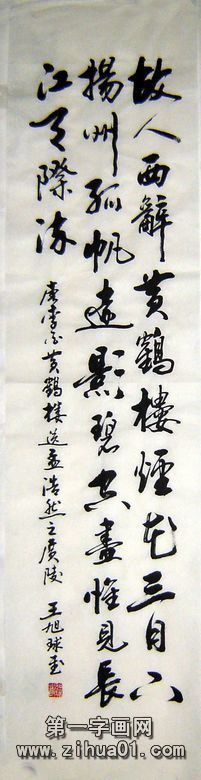 故人西辭黄鶴樓煙花三月下
揚州孤帆遠影碧空盡惟見長
江天際流
唐李白黄鶴樓送孟浩然之廣陵 王旭球書
第一字画网
www.zihua01.com